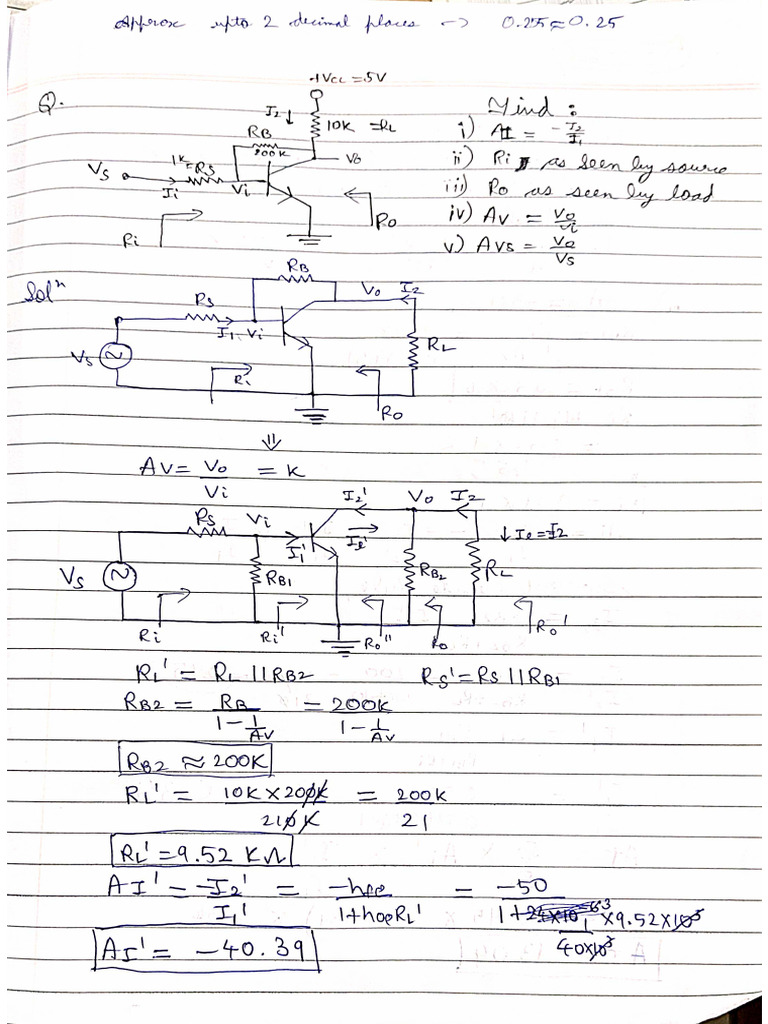 Approx upto 2 decimal places → 0.255≈0.25
+Vcc = 5V
Q.
I2 ↓
10K =RL
RB
200K
Vo
1K=RS
Vs
Ii
Vi
Ro
Ri
Find :
i) AI = -I2/I1
ii) Ri as seen by source
iii) Ro as seen by load
iv) Av = Vo/Vi
v) Avs = Vo/Vs
Solⁿ
RB
Vo I2
Rs
I1 Vi
RL
Vs
Ri
Ro
⇓
Av = Vo/Vi = K
I2' Vo I2
Rs Vi
I1' Il' ↓ Il = I2
Vs RB1 RB2 RL
Ri Ri' Ro'' Ro Ro'
RL' = RL || RB2 Rs' = Rs || RB1
RB2 = RB/(1 - 1/Av) = 200K/(1 - 1/Av)
RB2 ≈ 200K
RL' = 10K × 200K/210K = 200K/21
RL' = 9.52 KΩ
AI' = -I2'/I1' = -hfe/(1+hoeRL') = -50/(1 + 1/(40×10³) × 9.52×10³)
AI' = -40.39